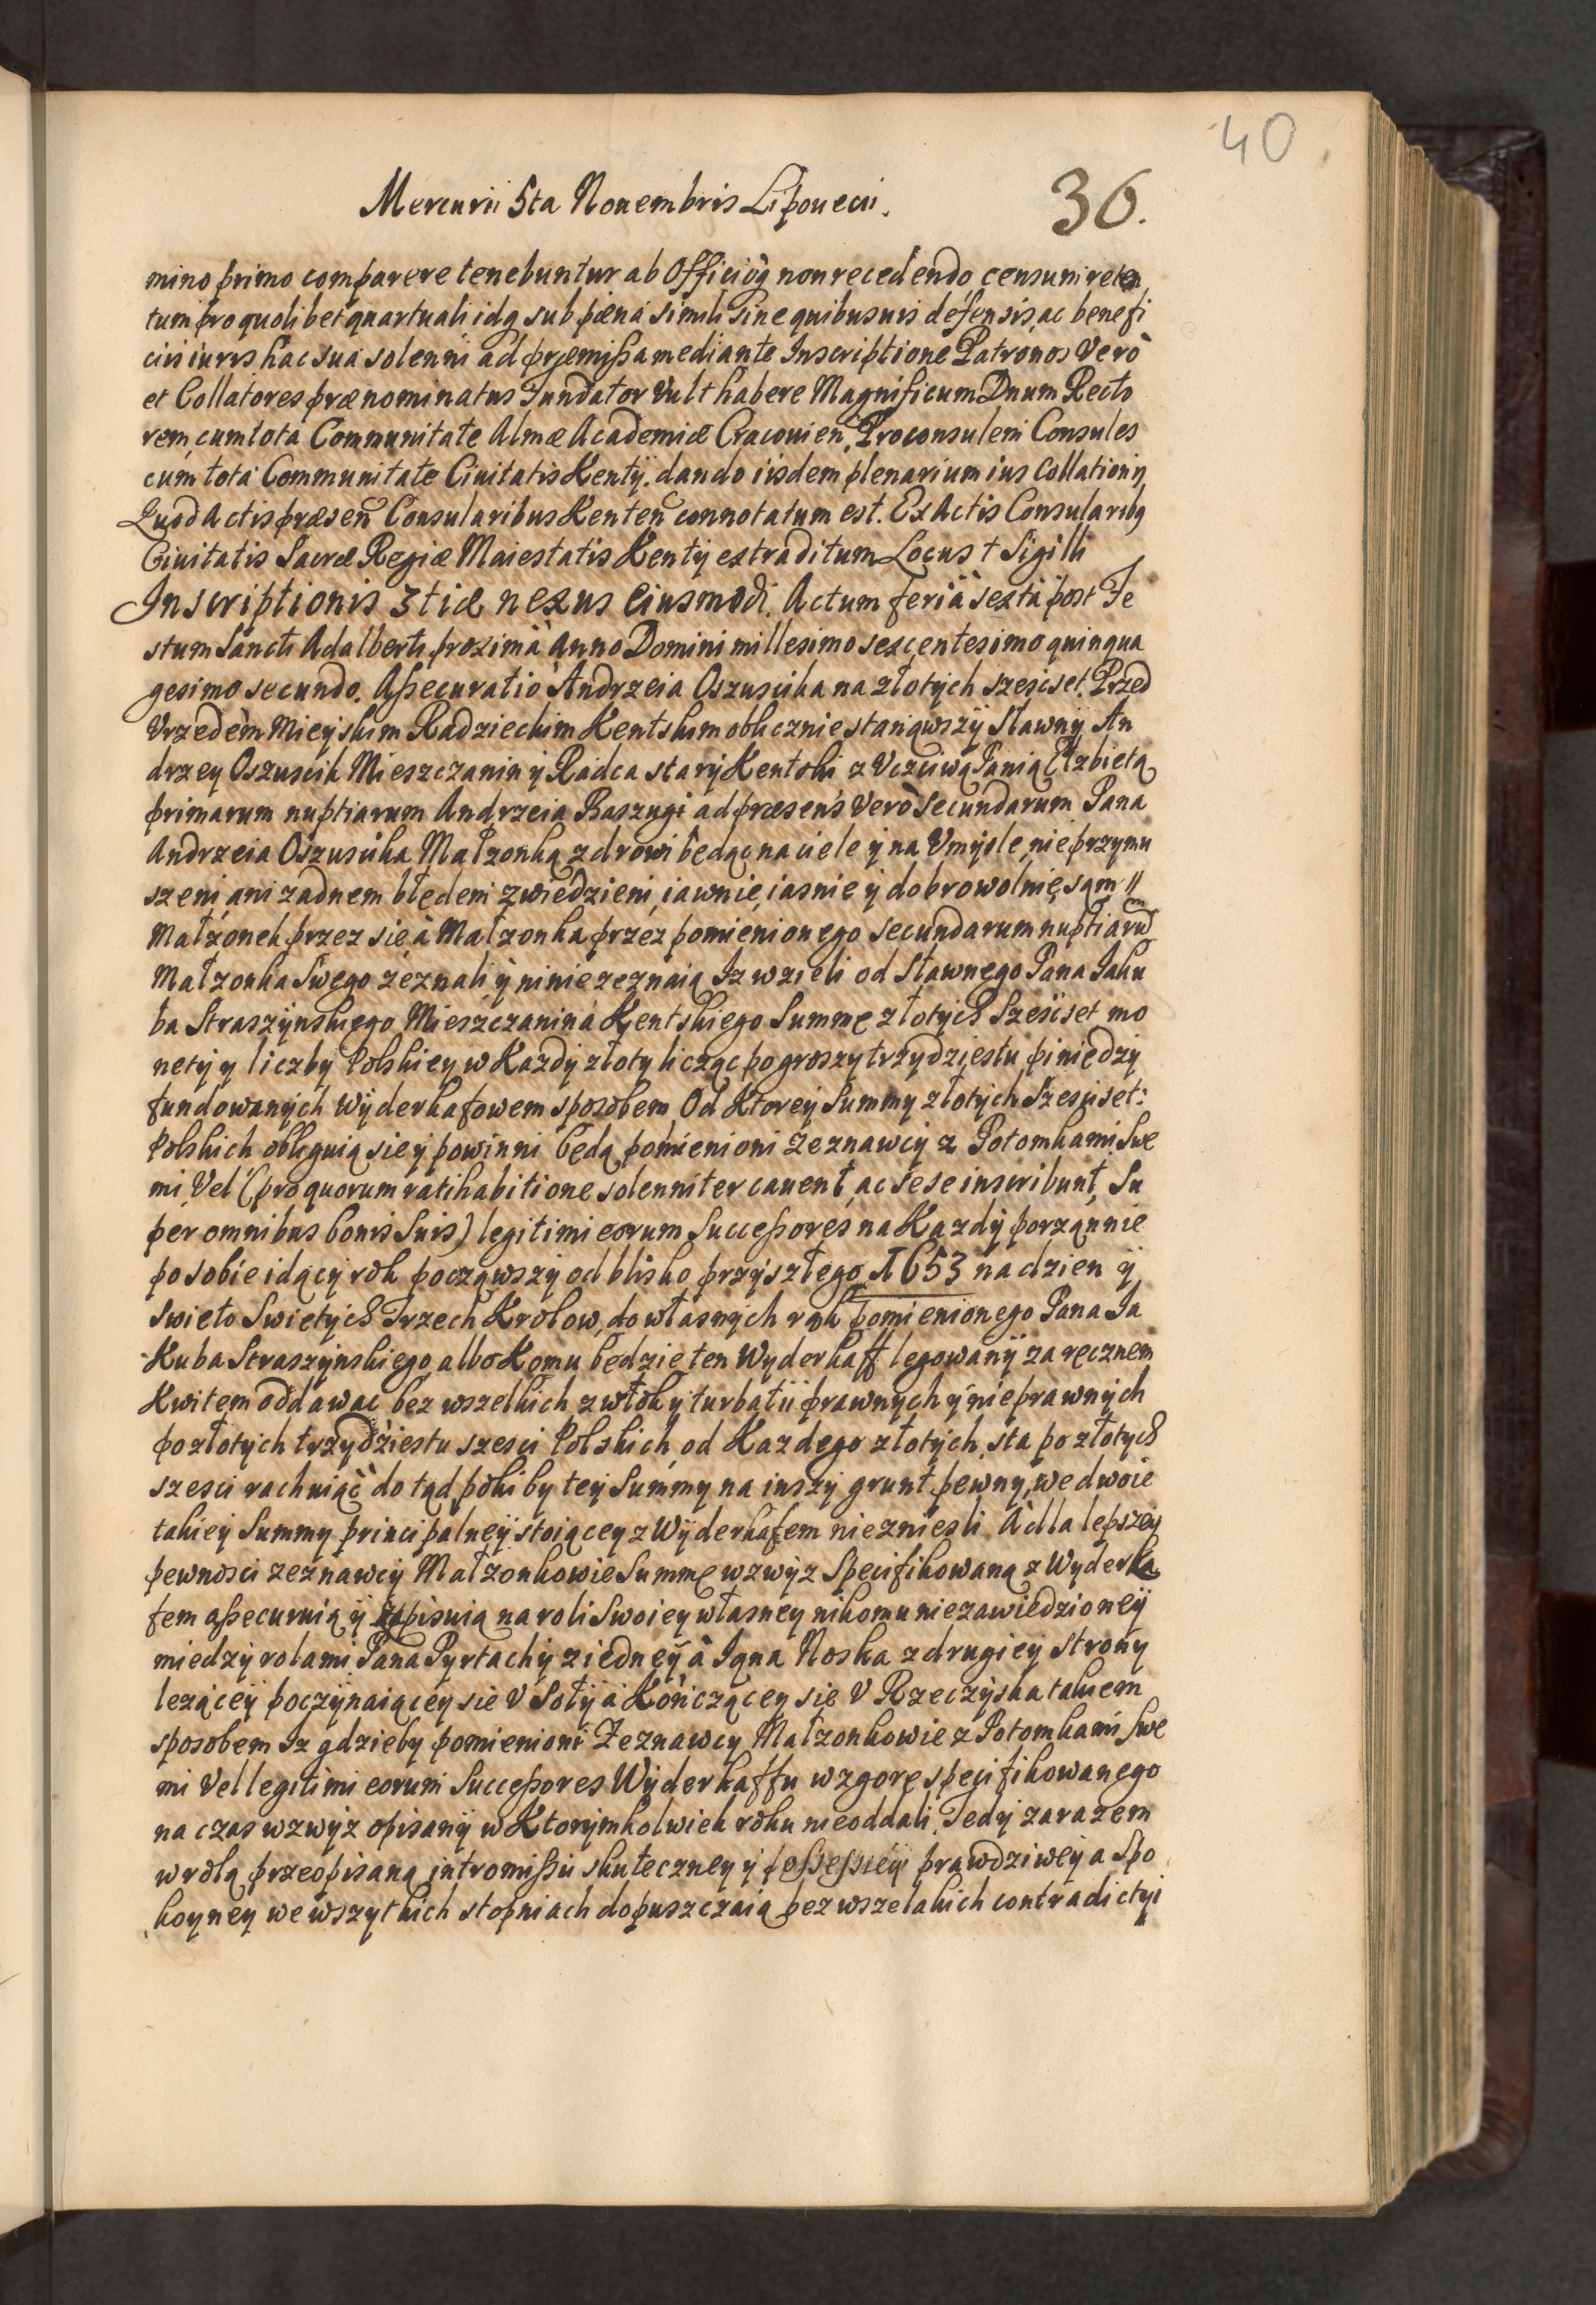 40
Mercurii 5ta Nouembris Lipouecii. 36.
mino primo comparere tenebuntur ab Officioq̃ non recedendo, censum reten
tum pro quolibet quartuali idq̃ sub pæna simili sine quibusuis defensis, ac benefi
ciis iuris hac sua solenni ad præmissa mediante Inscriptione Patronos Verò
et Collatores prænominatus Fundator Vult habere Magnificum Dnum Recto
rem, cum tota Communitate Almæ Academiæ Cracouien, Proconsulem Consules
cum tota Communitate Ciuitatis Kentÿ. dando iisdem plenarium ius Collationis,
Quod Actis præsen Consularibus Kenten connotatum est. Ex Actis Consularibq
Ciuitatis Sacræ Regiæ Maiestatis Kentÿ extraditum Locus † Sigilli
Inscriptionis 3tiæ nexus eiusmodi. Actum feriâ sextâ post Fe
stum Sancti Adalberti proximâ Anno Domini millesimo sexcentesimo quinqua
gesimo secundo. Assecuratio Andrzeia Oszuscika na złotych szesciset. Przed
Vrzedem Mieÿskim Radzieckim Kentskim oblicznie stanąwszÿ Sławnÿ An
drzey Oszuscik Mieszczanin ÿ Raÿdca starÿ Kentski z Vczciwą Panią Elzbietą
primarum nuptiarum Andrzeia Raszugi ad præsens Verò Secundarum Pana
Andrzeia Oszuscika Małzonką zdrowi będąc na ciele ÿ na Vmÿsle, nie przymu
szeni, ani zadnem błędem zwiedzieni, iawnie, iasnie ÿ dobrowolnie, sąm //
Małzonek przez się à Małzonka przez pomienionego secundarum nuptiarū
Małzonka Swego zeznali ÿ ninie zeznaią Iz wzieli od Sławnego Pana Iaku
ba Straszÿnskiego Mieszczanina Kentskiego Summę złotych Szesciset mo
netÿ y liczby Polskiey w Kazdÿ złoty licząc po groszy trzydziestu, piniedzÿ
fundowanÿch Wÿderkafowem sposobem, Od Ktoreÿ Summy złotych Szesciset:
Polskich obliguią sie ÿ powinni będą pomienioni Zeznawcÿ z Potomkami Swe
mi, Vel (pro quorum ratihabitione solenniter cauent, ac sese inscribunt, Su
per omnibus bonis Suis) legitimi eorum Successores na Kazdÿ porządnie
po sobie idącÿ rok począwszÿ od blisko przÿszłego 1653 na dzien ÿ
Swieto Swietÿch Trzech Krolow, do własnÿch rąk pomienionego Pana Ia
Kuba Straszÿnskiego albo Komu będzie ten Wyderkaff legowanÿ za ręcznem
Kwitem oddawac bez wszelkich zwłok ÿ turbatii prawnych ÿ nieprawnÿch
po złotych trzydziestu szesci Polskich, od Kazdego złotych sta po złotych
szesci rachuiąc do tąd poki by teÿ Summy na inszÿ grunt pewny, we dwoie
takieÿ Summy principalneÿ stoiącey z Wÿderkafem nie zniesli. A dla lepszeÿ
pewnosci zeznawcÿ Małzonkowie Summę wzwÿz Specifikowaną z Wyderka
fem assecuruią ÿ zapisuią na roli Swoiey własney nikomu niezawiedzioneÿ
miedzÿ rolami Pana Pyrtachÿ z iedneÿ à Iąna Noska z drugieÿ strony
lezącey poczÿnaiącey sie V Sołÿ à Kończącey sie V Rzeczÿska takiem
sposobem Iz gdzieby pomienioni Zeznawcy Małzonkowie z Potomkami Swe
mi Vel legitimi eorum Successores Wÿderkaffu wzgorę specifikowanego
na czas wzwÿz opisanÿ w Ktorÿmkolwiek roku nieoddali, Tedÿ zarazem
w rolą przeopisaną intromissii skuteczney ÿ possessieÿ prawdziweÿ a Spo
koÿney we wszytkich stopniach dopuszczaią bez wszelakich contradictyi